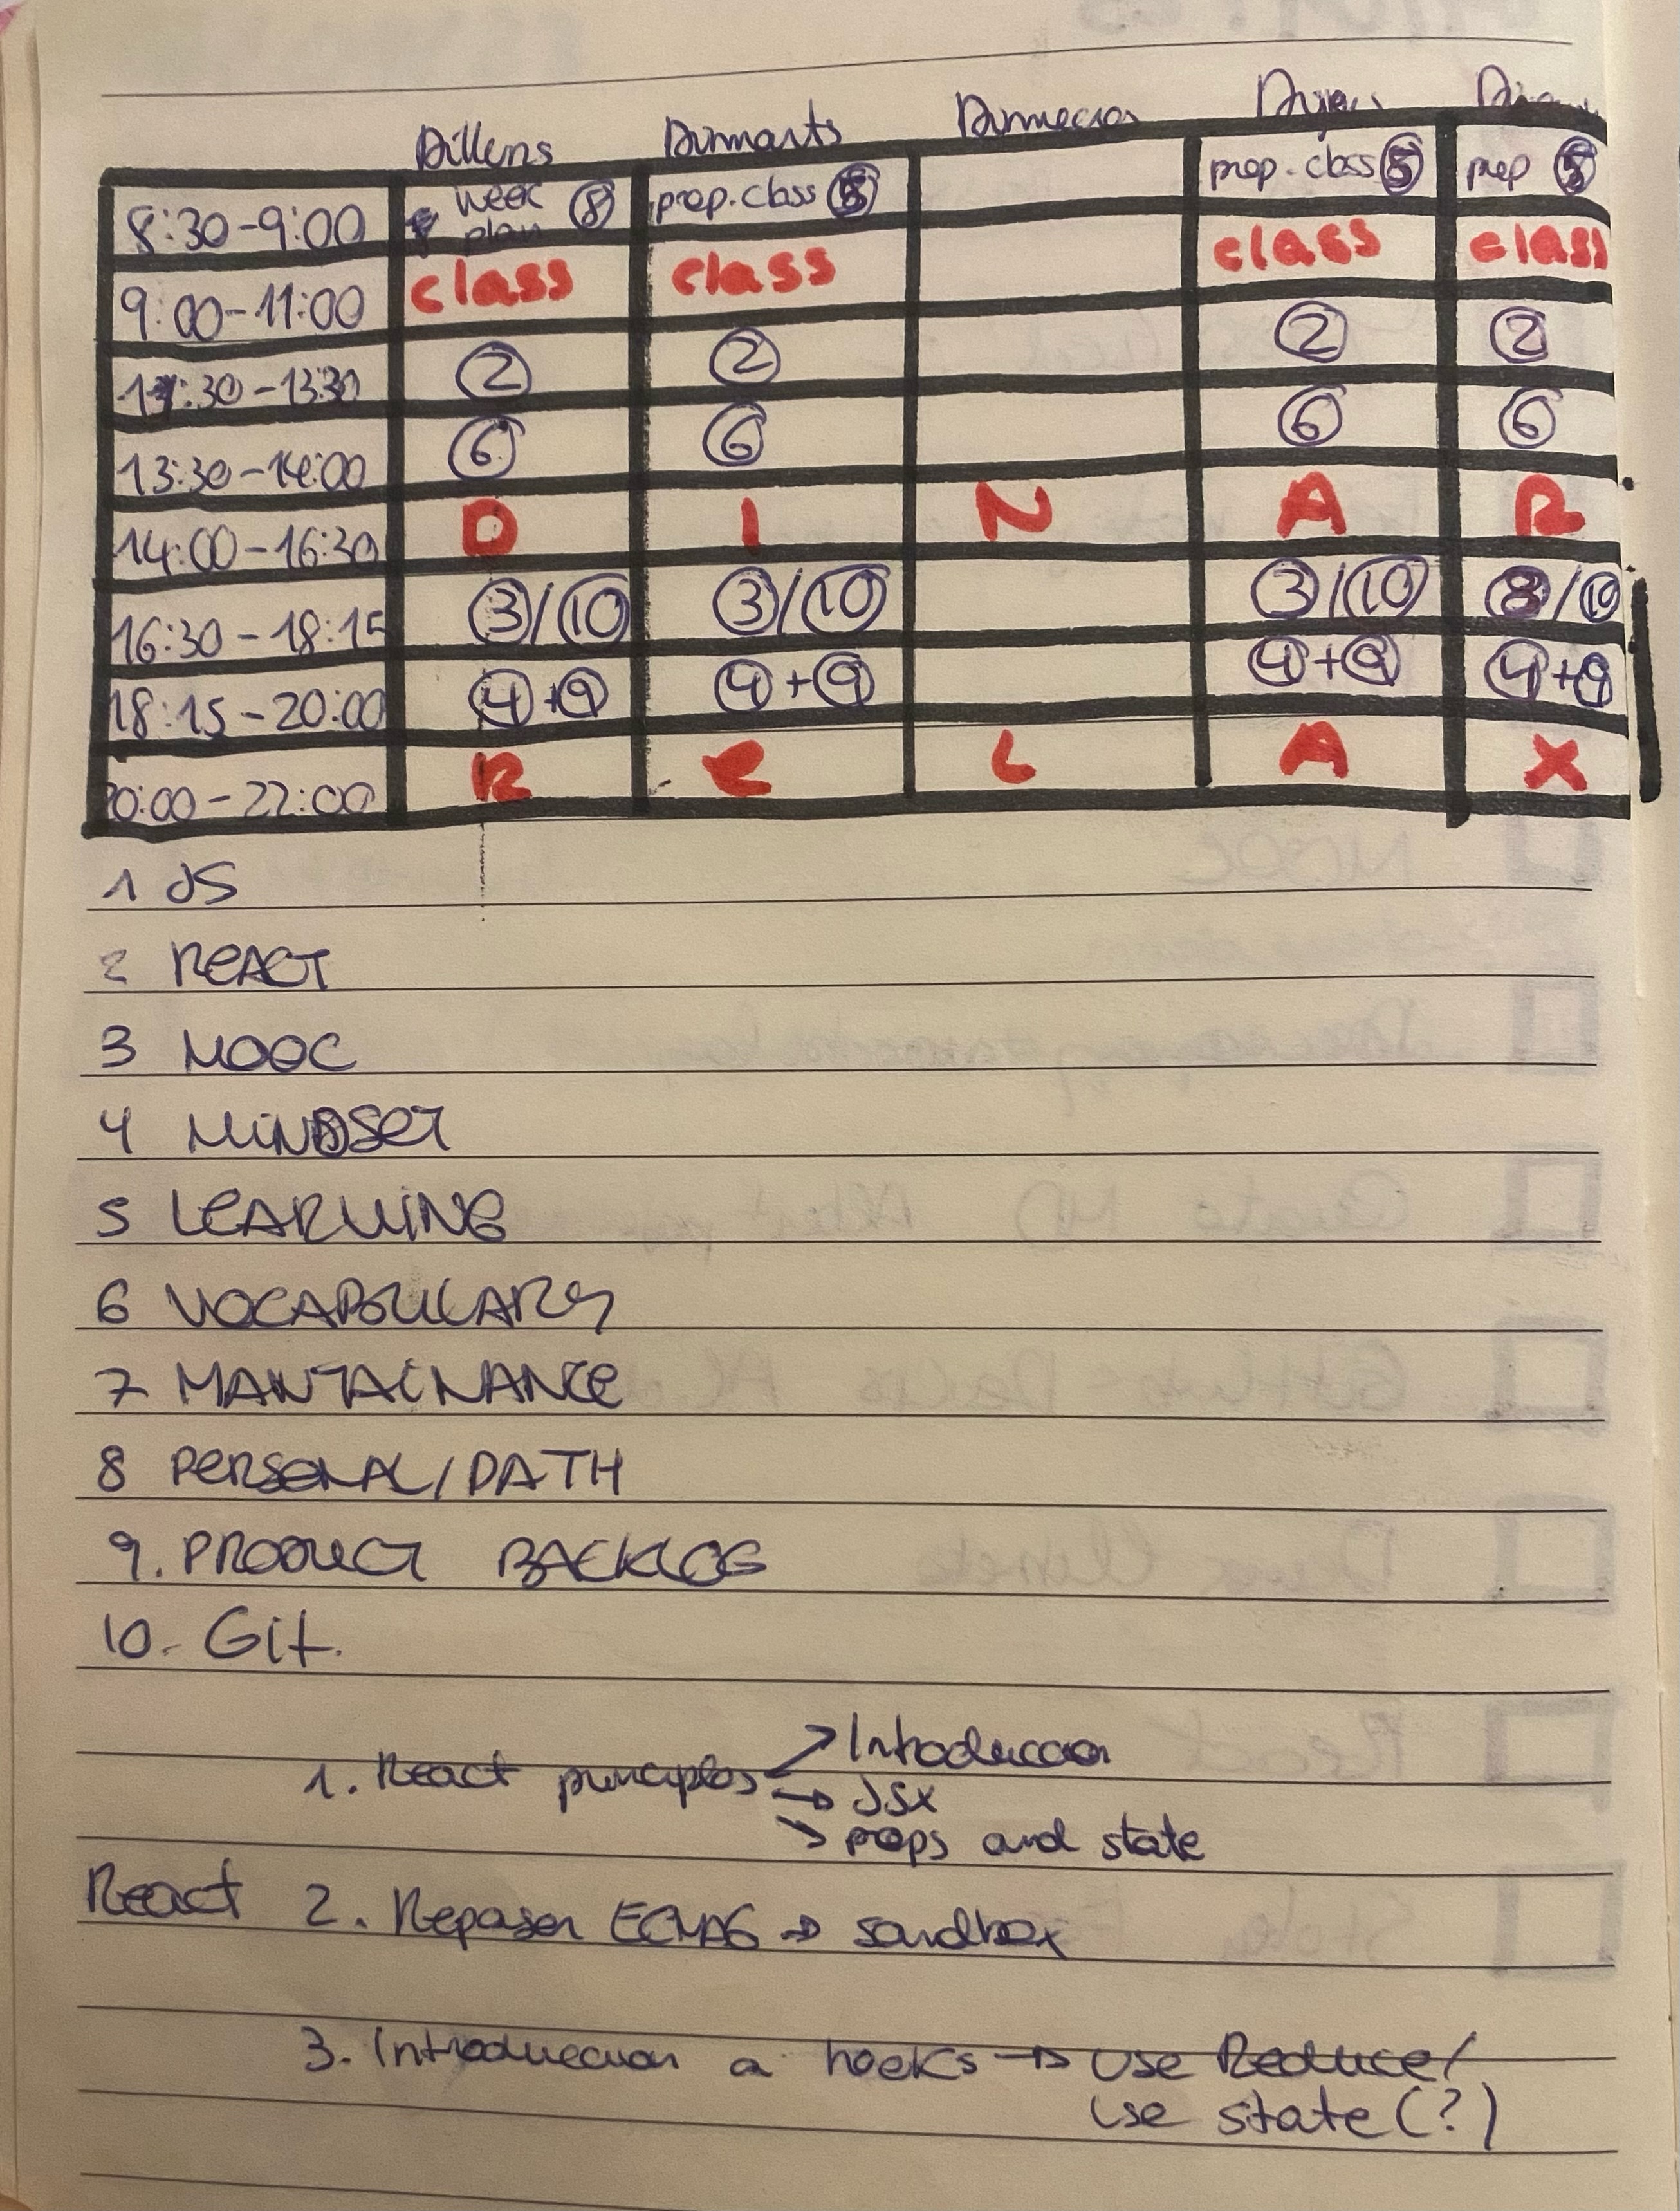 Dillens Dimarts Dimecres Dijous
8:30-9:00 week plan 8 prep. class 5 prep. class 5 prep 5
9:00-11:00 class class class class
11:30-13:30 2 2 2 2
13:30-14:00 6 6 6 6
14:00-16:30 D I N A R
16:30-18:15 3/10 3/10 3/10 3/10
18:15-20:00 4+9 4+9 4+9 4+9
20:00-22:00 R E L A X
1 JS
2 REACT
3 MOOC
4 MINDSET
5 LEARNING
6 VOCABULARY
7 MANTAINANCE
8 PERSONAL/PATH
9. PRODUCT BACKLOG
10. Git.
1. React principles → Introduccion
→ JSX
→ props and state
React 2. Repasar ECMA6 → sandbox
3. Introduccion a hooks → use Reducer/
use state (?)